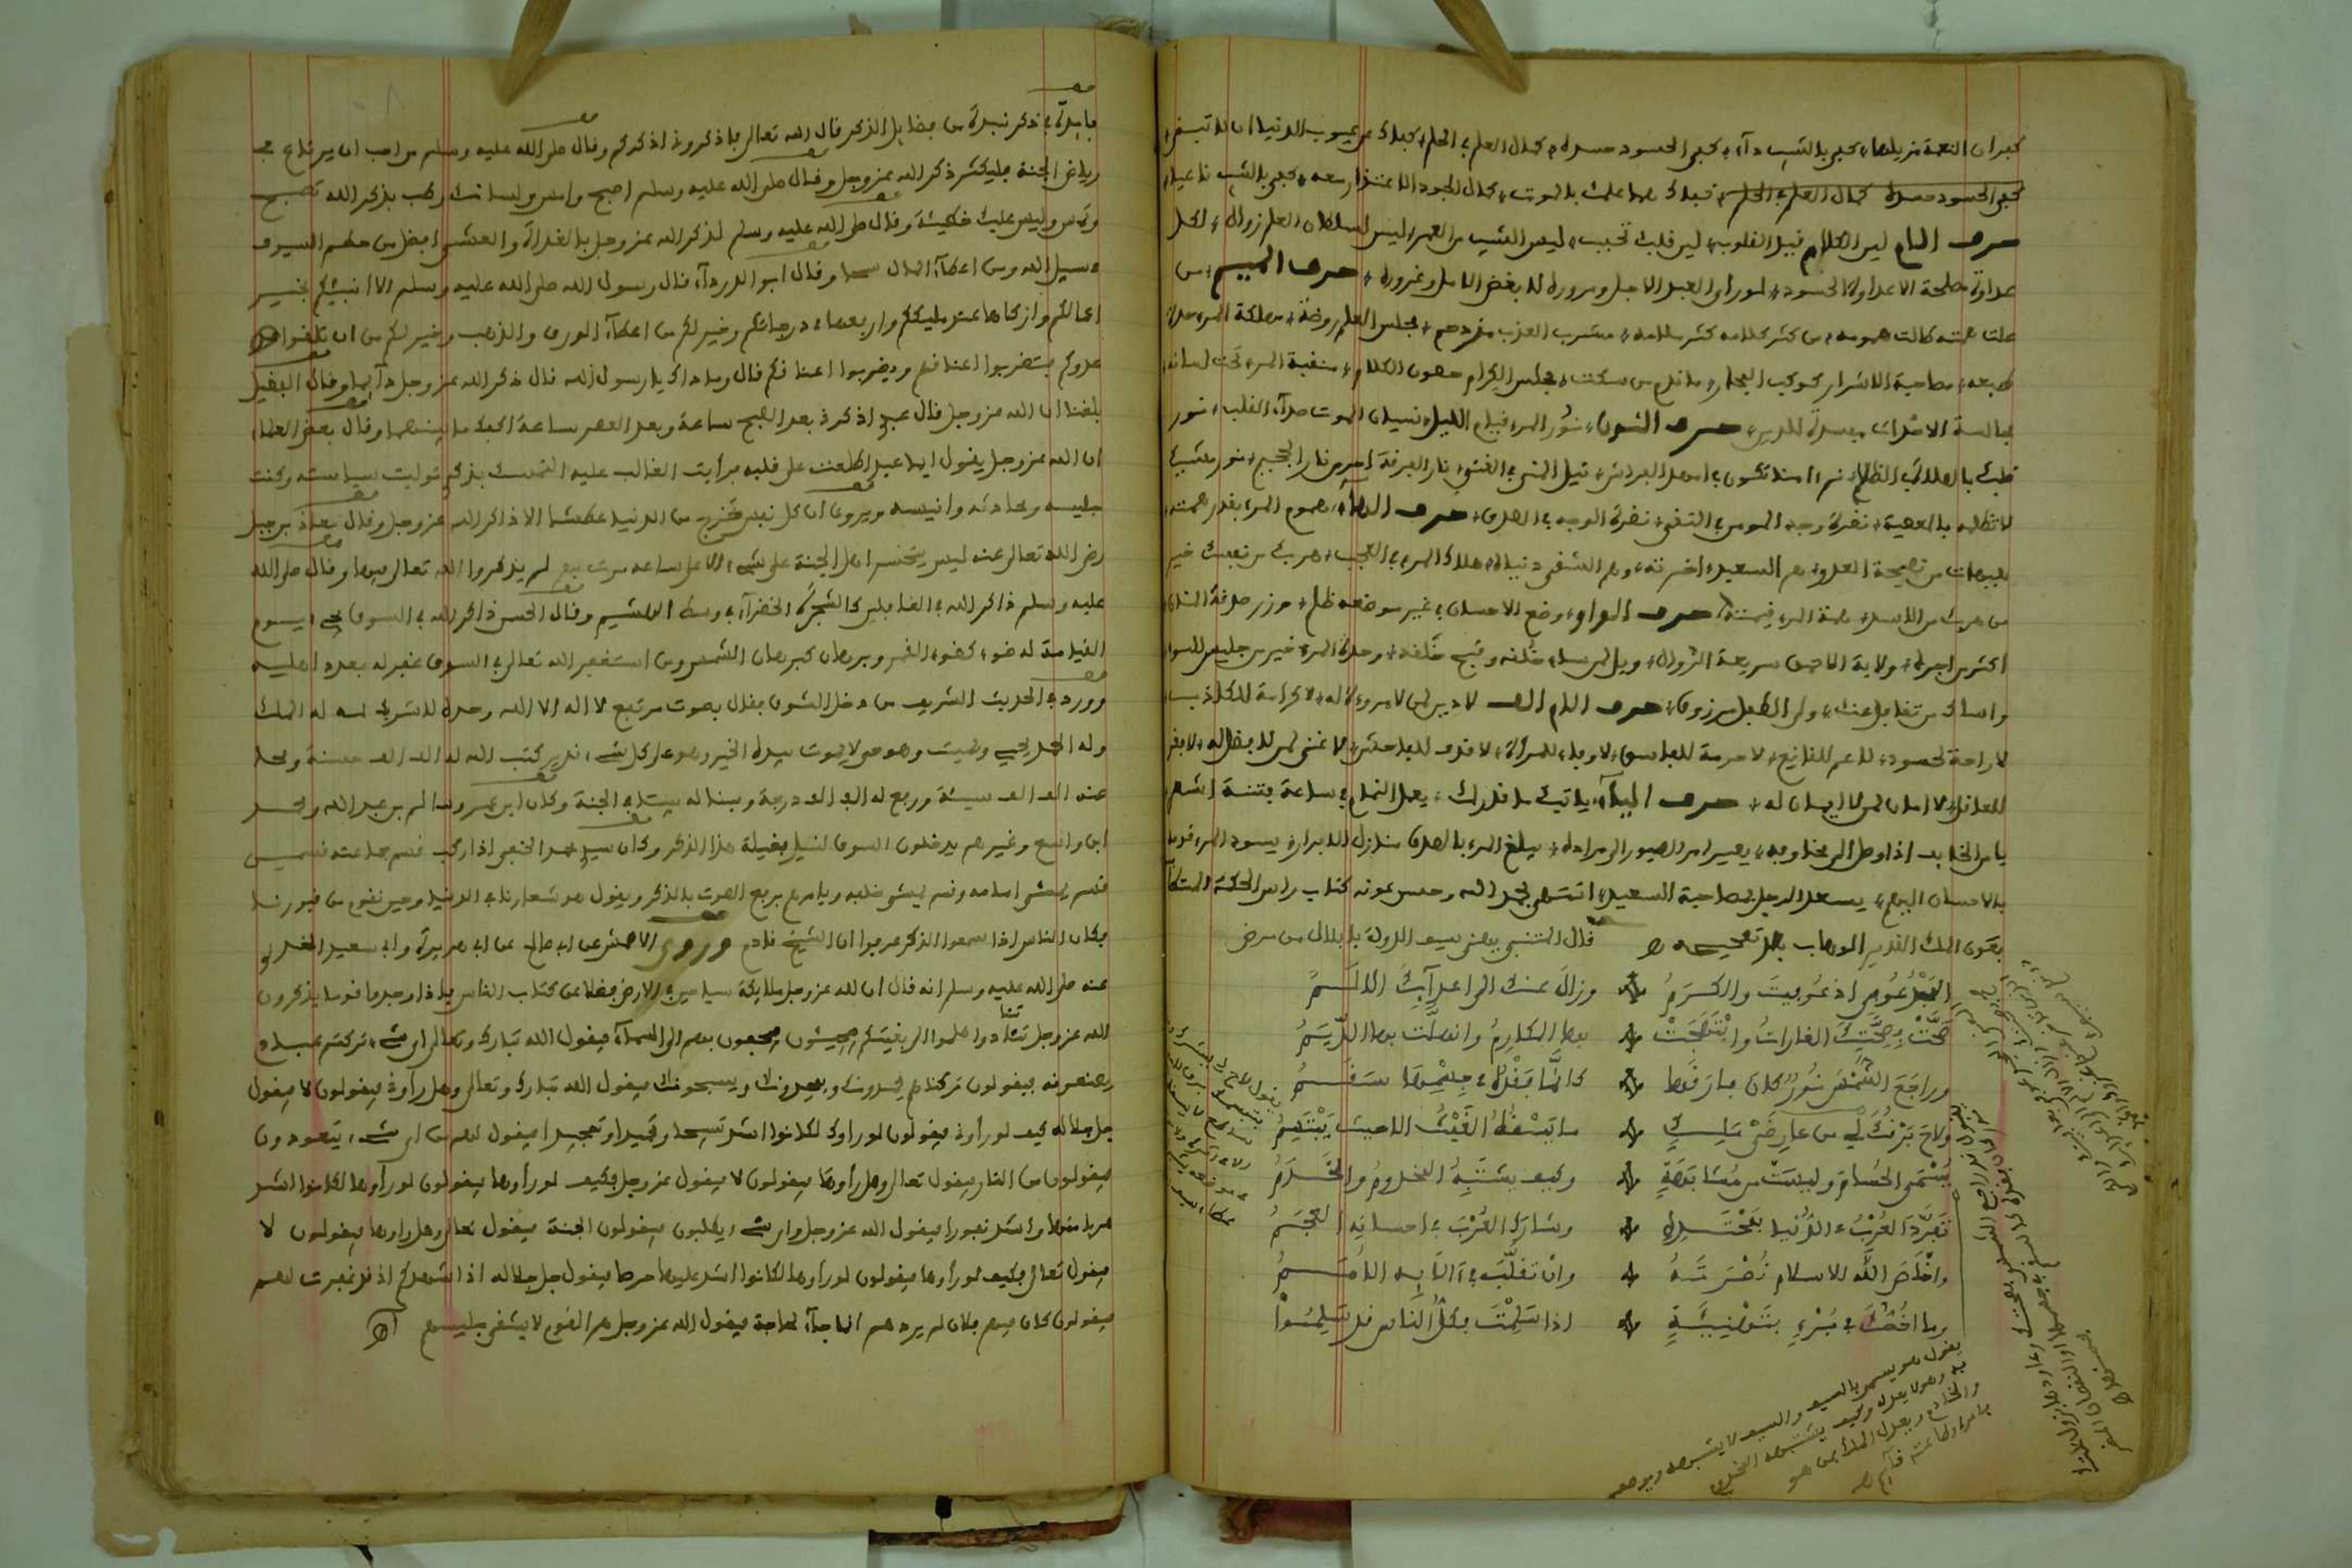 كفران النعمة مزيلها، كفى بالشيب داء، كفى الحسود حسده، كمال العلم في الحلم، كفاك من عيوب الدنيا ان لا تبقى،
كفى الحسود حسده كمال العلم في الحلم، كفاك هما علمك بالموت، كمال الجود الاعتذار معه، كفى بالشيب ناعيا،
حرف اللام لين الكلام قيد القلوب، لين قلبك تحبب، ليس الشيب من العمر، ليس لسلطان العلم زوال، لكل
عداوة مصلحة الا عداوة الحسود، لو رأى العبد الاجل ومروره لابغض الامل وغروره، حرف الميم، من
علت همته طالت همومه، من كثر كلامه كثر ملامه، مشرب العذب مزدحم، مجلس العلم روضة، مهلكة المرء حدة
طبعه، مصاحبة الاشرار ركوب البحار، ما ندم من سكت، مجلس الكرام حصون الكلام، منقبة المرء تحت لسانه،
مجالسة الاحداث مفسدة للدين، حرف النون، نور المرء قيام الليل، نسيان الموت صدأ القلب، نور
قلبك بالصلاة في الظلم، نم آمنا تكون في امهد الفراش، نيل المنى في الغنى، نار الفرقة احر من نار الجحيم، نور شيبك
لا تظلمه بالمعصية، نضرة وجه المومن في التقى، نضرة الوجه في الصدق، حرف الهاء، هموم المرء بقدر همته،
هيهات من نصيحة العدو، هم السعيد اخرته وهم الشقي دنياه، هلاك المرء في العجب، هربك من نفسك خير
من هربك من الاسد، همة المرء قيمته، حرف الواو، وضع الاحسان في غير موضعه ظلم، وزر صدقة المنان
اكثر من اجره، ولاية الاحمق سريعة الزوال، ويل لمن ساء خلقه وقبح خلقه، وحدة المرء خير من جليس السوء
واساك من تغافل عنك، ولى الطفل مرزوق، حرف اللام الف لا دين لمن لا مروءة له، لا كرامة للكاذب،
لا راحة لحسود، لا غم للقانع، لا حرمة للفاسق، لا وفاء للمرأة، لا غنى لمن لا فضل له، لا فقر
للعاقل، لا امان لمن لا ايمان له، حرف الياء، ياتيك ما قدر لك، يعمل النمام في ساعة فتنة اشهر،
يا من الخائف اذا وصل الى مخافه، يصير امر الصبور الى مراده، يبلغ المرء بالصدق منازل الابرار، يسود المرء قومه
بالاحسان اليهم، يسعد الرجل بمصاحبة السعيد، انتهى بحمد الله وحسن عونه كتاب راس الحكمة
بعون الملك القدير الوهاب
قال المتنبي يهني سيف الدولة بابلال من مرض
المَجْدُ عُوفِي اذ عُوفِيتَ والكَرَمُ وزالَ عنك الى اعدآئِكَ الاَلَمُ
صَحَّتْ بِصِحَّتِكَ الغاراتُ وابْتَهَجَتْ بها المكارِمُ وانهلّت بها الدِّيَمُ
وراجَعَ الشَّمْسَ نُورٌ كان فارَقَها كانَّمَا فَقْدُهُ في جِسْمِها سَقَمُ
ولاحَ بَرْقُكَ لِي من عارِضَيْ مَلِكٍ ما يَسْقُطُ الغَيْثُ الا حيث يَبْتَسِمُ
يُسْمَى الحُسَامَ وليست من مُشابَهَةٍ وكيف يشتَبِهُ المخدومُ والخَدَمُ
تَفَرَّدَ العُرْبُ في الدُّنيا بِمَحْتَدِهِ وشارَكَ العُرْبَ في احسانِه العَجَمُ
واخْلَصَ اللَّه للاسلام نُصْرَتَهُ وان تَقلَّبَ في آلائه الاُمَمُ
وما اخُصُّكَ في بُرْءٍ بتَهْنِيَةٍ اذا سَلِمْتَ فكلُّ الناس قد سَلِمُوا
فايدة في ذكر نبذة من فضايل الذكر قال الله تعالى فاذكروني اذكركم وقال صلى الله عليه وسلم من احب ان يرتع في
رياض الجنة فليكثر ذكر الله عز وجل وقال صلى الله عليه وسلم اصبح وامس ولسانك رطب بذكر الله تصبح
وتمس وليس عليك خطيئة وقال صلى الله عليه وسلم لذكر الله عز وجل بالغداة والعشي افضل من حطم السيوف
في سبيل الله ومن اعطاء المال سحا وقال ابو الدرداء قال رسول الله صلى الله عليه وسلم الا انبئكم بخير
اعمالكم وازكاها عند مليككم وارفعها في درجاتكم وخير لكم من اعطاء الورق والذهب وخير لكم من ان تلقوا
عدوكم فتضربوا اعناقهم ويضربوا اعناقكم قال وما ذاك يا رسول الله قال ذكر الله عز وجل دآيما وقال الفضيل
بلغنا ان الله عز وجل قال عبدي اذكرني بعد الصبح ساعة وبعد العصر ساعة اكفك ما بينهما وقال بعض العلماء
ان الله عز وجل يقول ايما عبد اطلعت على قلبه فرأيت الغالب عليه التمسك بذكري توليت سياسته وكنت
جليسه ومحادثه وانيسه ويروى ان كل نفس تخرج من الدنيا عطشى الا ذاكر الله عز وجل وقال معاذ بن جبل
رضي الله تعالى عنه ليس يتحسر اهل الجنة على شيء الا على ساعة مرت بهم لم يذكروا الله تعالى فيها وقال صلى الله
عليه وسلم ذاكر الله في الغافلين كالشجرة الخضرآء في وسط الهشيم وقال الحسن ذاكر الله في السوق يجيء يوم
القيامة له ضوء كضوء القمر وبرهان كبرهان الشمس ومن استغفر الله تعالى في السوق غفر له بعدد اهليه
وورد في الحديث الشريف من دخل السوق فقال بصوت مرتفع لا اله الا الله وحده لا شريك له له الملك
وله الحمد يحيي ويميت وهو حي لا يموت بيده الخير وهو على كل شيء قدير كتب الله له الف الف حسنة ومحا
عنه الف الف سيئة ورفع له الف الف درجة وبنى له بيتا في الجنة وكان ابن عمر وسالم بن عبد الله ومحمد
ابن واسع وغيرهم يدخلون السوق لنيل فضيلة هذا الذكر وكان سيدي محمد الحنفي اذا ركب قسم جماعته قسمين
قسم يمشي امامه وقسم يمشي خلفه ويامرهم برفع الصوت بالذكر ويقول هو شعارنا في الدنيا وحين نقوم من قبورنا
فكان الناس اذا سمعوا الذكر عرفوا ان الشيخ قادم وروى الاعمش عن ابي صالح عن ابي هريرة وابي سعيد الخدري
عنه صلى الله عليه وسلم انه قال ان لله عز وجل ملايكة سياحين في الارض فضلا عن كتاب الناس فاذا وجدوا قوما يذكرون
الله عز وجل تنادوا هلموا الى بغيتكم فيجيئون فيحفون بهم الى السماء فيقول الله تبارك وتعالى اي شيء تركتم عبادي
يصنعونه فيقولون تركناهم يحمدونك ويمجدونك ويسبحونك فيقول الله تبارك وتعالى وهل رأوني فيقولون لا فيقول
جل جلاله كيف لو رأوني فيقولون لو رأوك لكانوا اشد تسبيحا وتحميدا وتمجيدا فيقول لهم من اي شيء يتعوذون
فيقولون من النار فيقول تعالى وهل رأوها فيقولون لا فيقول عز وجل فكيف لو رأوها فيقولون لو رأوها لكانوا اشد
هربا منها واشد نفورا فيقول الله عز وجل واي شيء يطلبون فيقولون الجنة فيقول تعالى وهل راوها فيقولون لا
فيقول تعالى فكيف لو رأوها فيقولون لو رأوها لكانوا اشد عليها حرصا فيقول جل جلاله اذا اشهدكم اني قد غفرت لهم
فيقولون كان فيهم فلان لم يردهم انما جاء لحاجة فيقول الله عز وجل هم القوم لا يشقى جليسهم